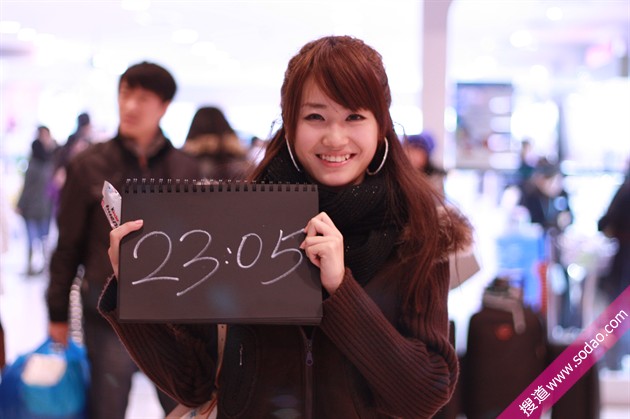 23:05
搜道 www.sodao.com